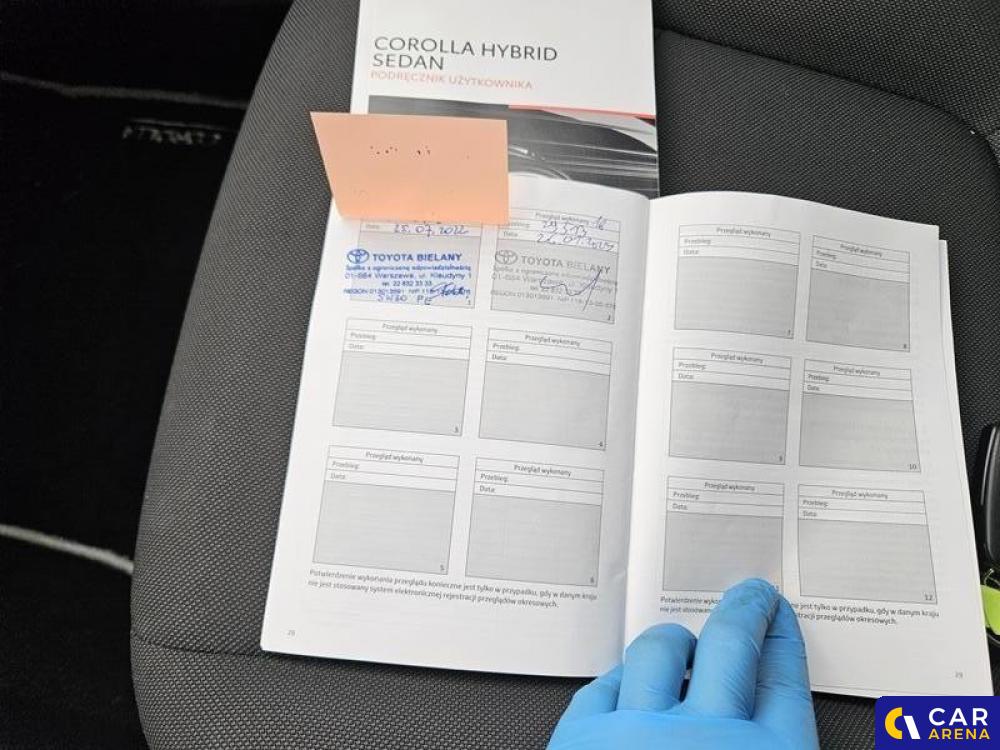 COROLLA HYBRID
SEDAN
PODRĘCZNIK UŻYTKOWNIKA
Data: 25.07.2022
TOYOTA BIELANY
Spółka z ograniczoną odpowiedzialnością
01-684 Warszawa, ul. Klaudyny 1
tel. 22 832 33 33
REGON 013013991 NIP
1
Przegląd wykonany
Przebieg:
Data:
TOYOTA BIELANY
Spółka z ograniczoną odpowiedzialnością
01-684 Warszawa, ul. Klaudyny 1
tel. 22 832
REGON 013013991 NIP
2
Przegląd wykonany
Przebieg:
Data:
3
Przegląd wykonany
Przebieg:
Data:
4
Przegląd wykonany
Przebieg:
Data:
5
Przegląd wykonany
Przebieg:
Data:
6
Potwierdzenie wykonania przeglądu konieczne jest tylko w przypadku, gdy w danym kraju
nie jest stosowany system elektronicznej rejestracji przeglądów okresowych.
28
Przegląd wykonany
Przebieg:
Data:
7
Przegląd wykonany
Przebieg:
Data:
8
Przegląd wykonany
Przebieg:
Data:
9
Przegląd wykonany
Przebieg:
Data:
10
Przegląd wykonany
Przebieg:
Data:
Przegląd wykonany
Przebieg:
Data:
12
Potwierdzenie jest tylko w przypadku, gdy w danym kraju
nie jest przeglądów okresowych.
29
CAR
ARENA